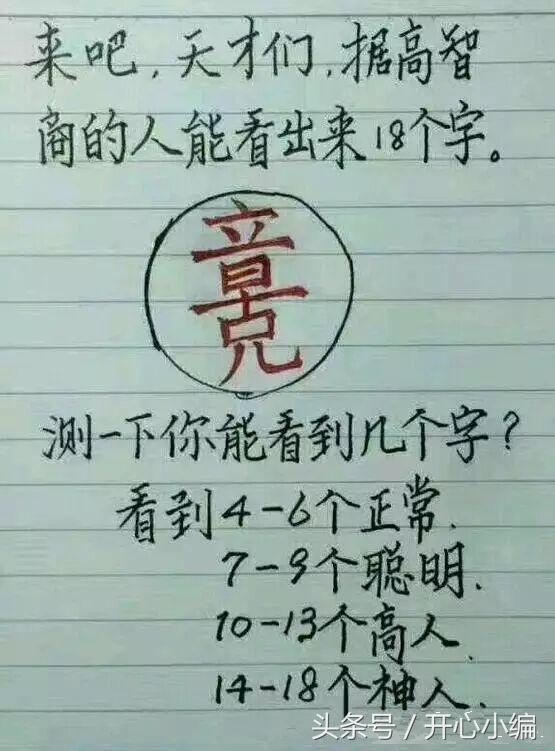 来吧,天才们,据高智
商的人能看出来18个字。
测一下你能看到几个字?
看到4-6个正常.
7-9个聪明.
10-13个高人.
14-18个神人.
头条号/开心小编